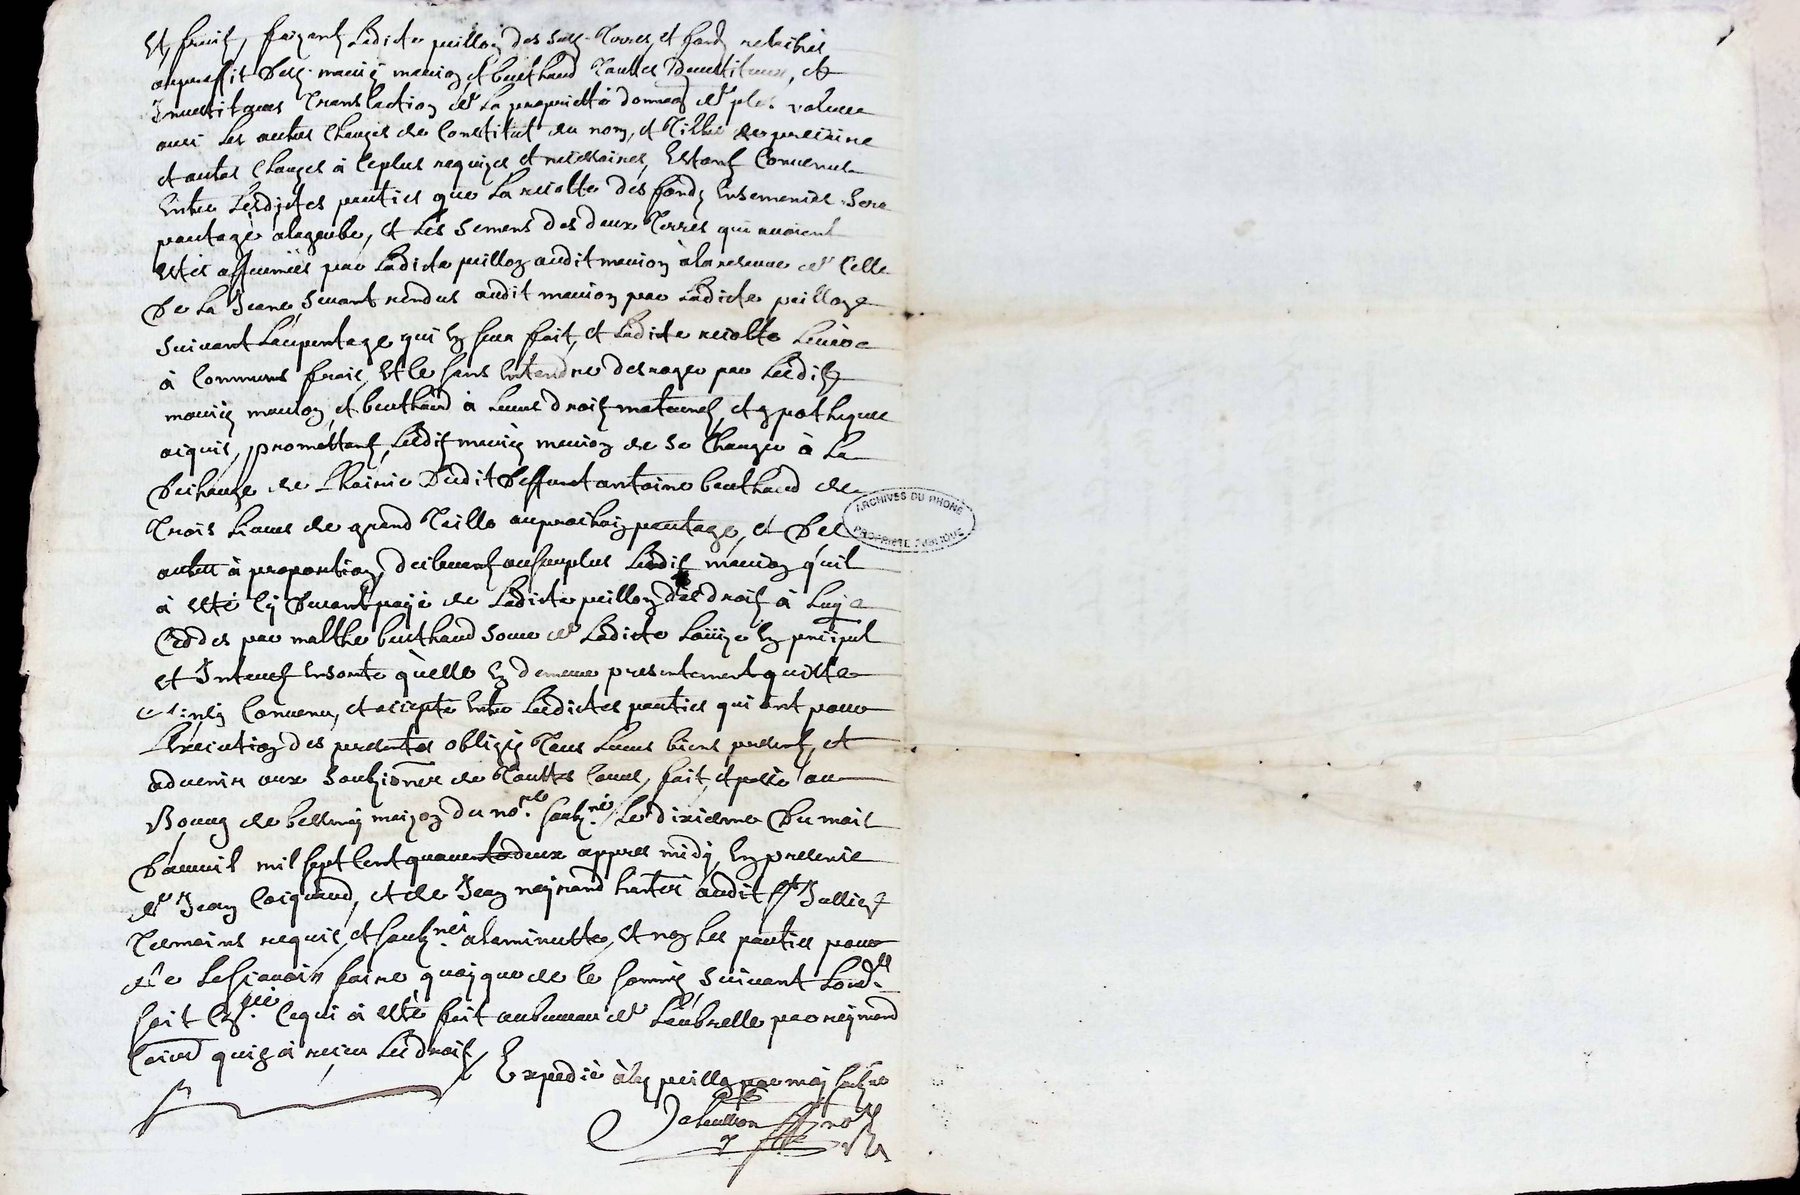 et fruits, faizant Ladicte peillon des susd. Terres, et fonds relachés
auproffit desd. mariés marion, et berthaud Toutes Devestitures, et
Investitures Translaction de La proprietté donnaon de plus vallue
avec les autres Clauzes de Constitut du nom, et Tiltre de precaire
et autres Clauzes à Ceplus requizes et necessaires, Estant Convenus
Entre Lesdictes parties que La recolte des fonds Ensemencés Sera
partagé alagerbe, et Les Semens des deux Terres qui avoient
estés affermées par Ladicte peillon audit marion àlareserve de Celle
De La Serve, Seront rendus audit marion par Ladicte peillon
Suivant Larpentage qui En Sera fait, et Ladicte recolte Levée
à Communs frais, Et le Sans Entendre desroger par Lesdits
mariés marion, et berthaud à Leurs droits maternels, et ypotheque
aiquis, promettant, Lesdits mariés marion de Se Charger à La
Decharge de Lhoirie Dudit Deffunt antoine berthaud de
Trois Livres de grand Taille auprochain partage, et Des
autres à proportion, declarant ausurplus Ledit marion qu'il
à esté Cy Devant payé de Ladicte peillon des droits à Luy
Ceddes par malthe berthaud Soeur de Ladicte Loüize En principal
et Interest Ensorte qu'elle En demeure presentement quitte
Convenu, et accepté Entre Lesdictes parties qui ont pour
Lexecution des presentes obligés Tous Leurs biens presents, et
advenir aux Soubzmissions de Touttes Cours, fait, et passé au
Bourg de maizon du no.re soubz.né Le dixieme Du mois
Davril mil sept Cent quarente deux appres midy, En presence
de Jean Coiquard, et de Jean reynard audit St Jullien
Temoins requis, et soubz.nés alaminutte, et non Les parties pour
ne Le Sçavoir faire, quoyque de le Sommés Suivant Lord.
fait Ce qui à esté fait aubureau de Larbrelle par reymond
Commis qui en à receu Les droits
Expedié àlad. peillon par moy soubz.né
no.re
ARCHIVES DU RHONE
PROPRIETE PUBLIQUE